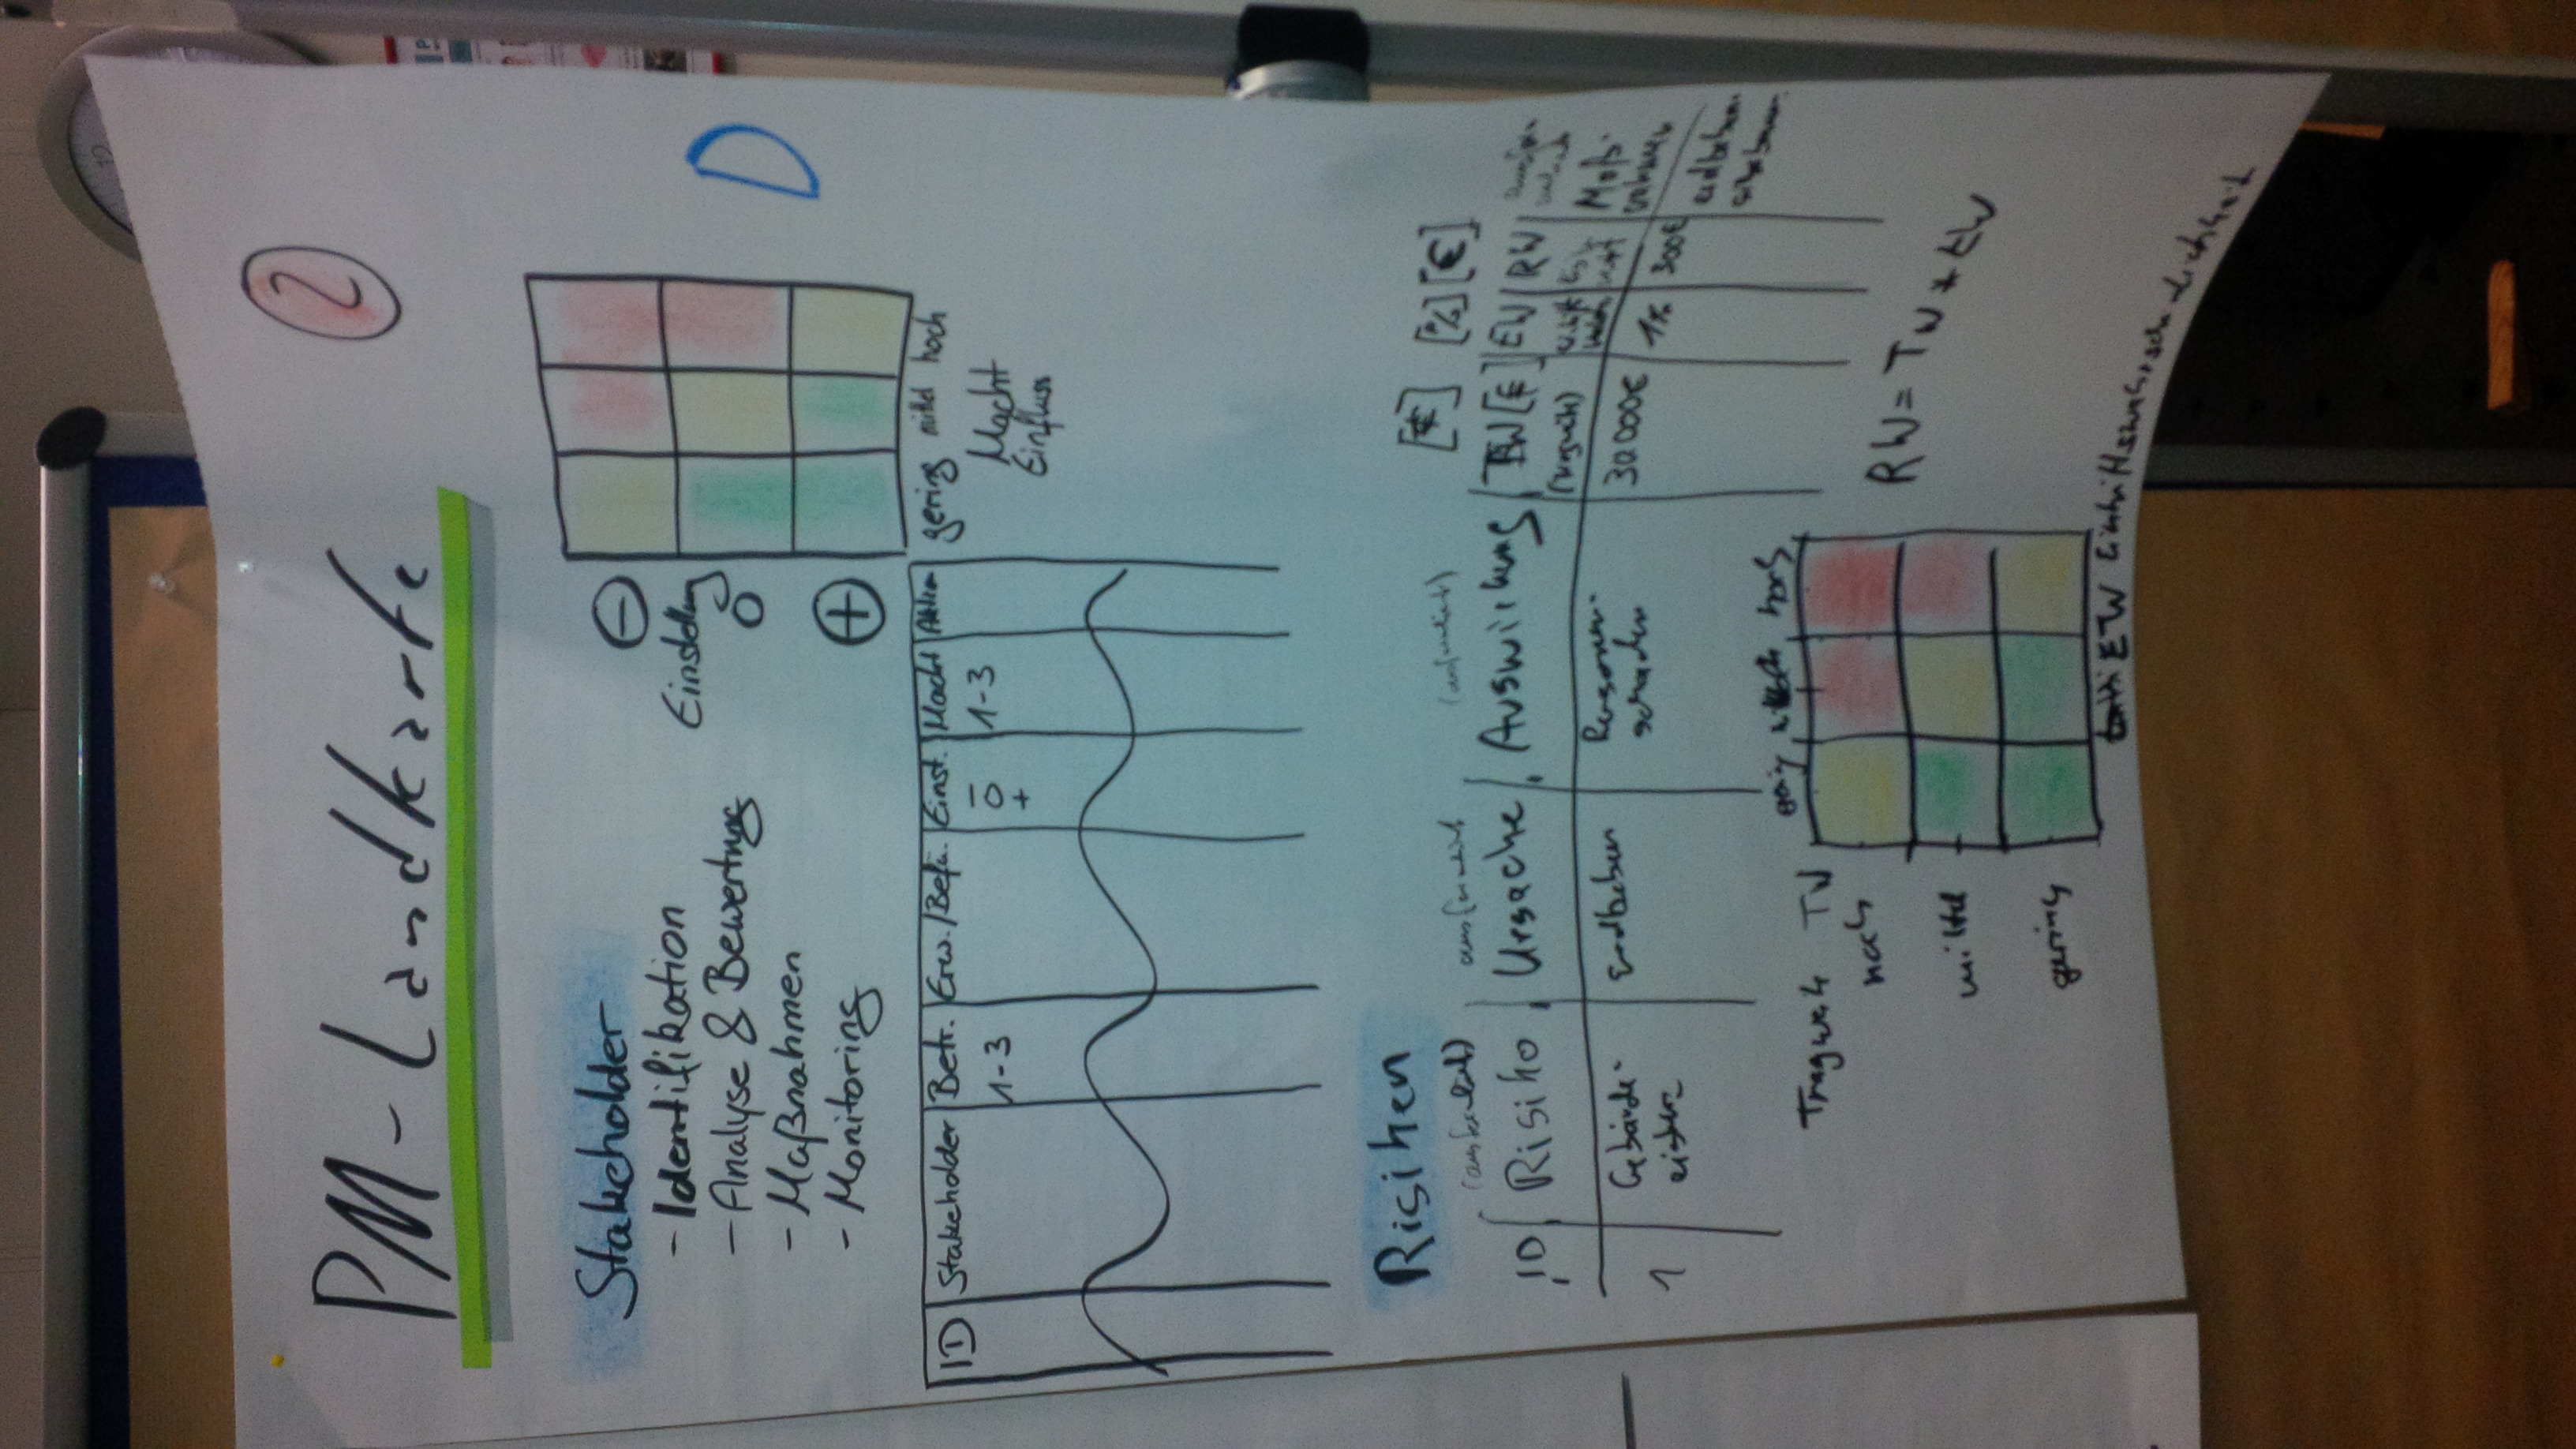 2
PM - Landkarte
D
Stakeholder
- Identifikation
- Analyse & Bewertung
- Maßnahmen
- Monitoring
−
Einstellung
0
+
gering mittel hoch
Macht
Einfluss
ID Stakeholder Betr. Erw./Befü. Einst. Macht Aktion
1-3 − 0 + 1-3
Risiken
[€] [%] [€]
ID Risiko Ursache Auswirkung TW [€] EW RW
1 Gebäude- Erdbeben Personen- 30 000€ 1% 300€ erdbeben-
schaden
RW = TW * EW
Tragweite TW
gering mittel hoch
hoch
mittel
gering
EW Eintrittswahrscheinlichkeit